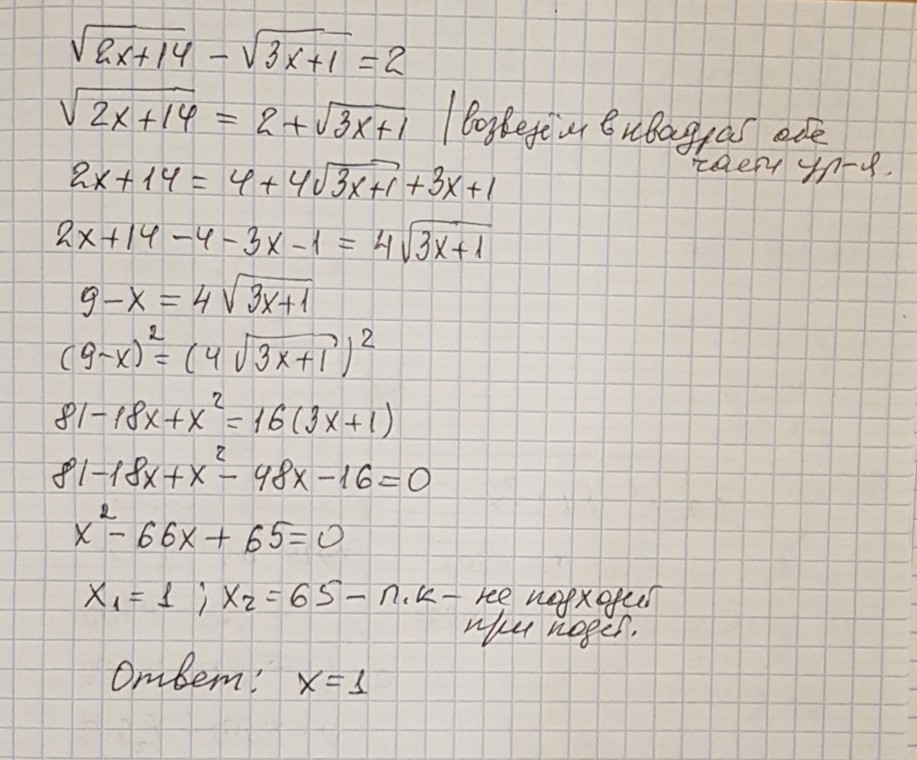 √2x+14 − √3x+1 = 2
√2x+14 = 2 + √3x+1 | возведём в квадрат обе
части ур-я.
2x+14 = 4 + 4√3x+1 + 3x+1
2x+14 −4 −3x −1 = 4√3x+1
9−x = 4√3x+1
(9−x)² = (4√3x+1)²
81−18x+x² = 16(3x+1)
81−18x+x² − 48x −16 = 0
x² − 66x + 65 = 0
x₁ = 1 ; x₂ = 65 − п.к − не подходит
при подст.
Ответ: x = 1